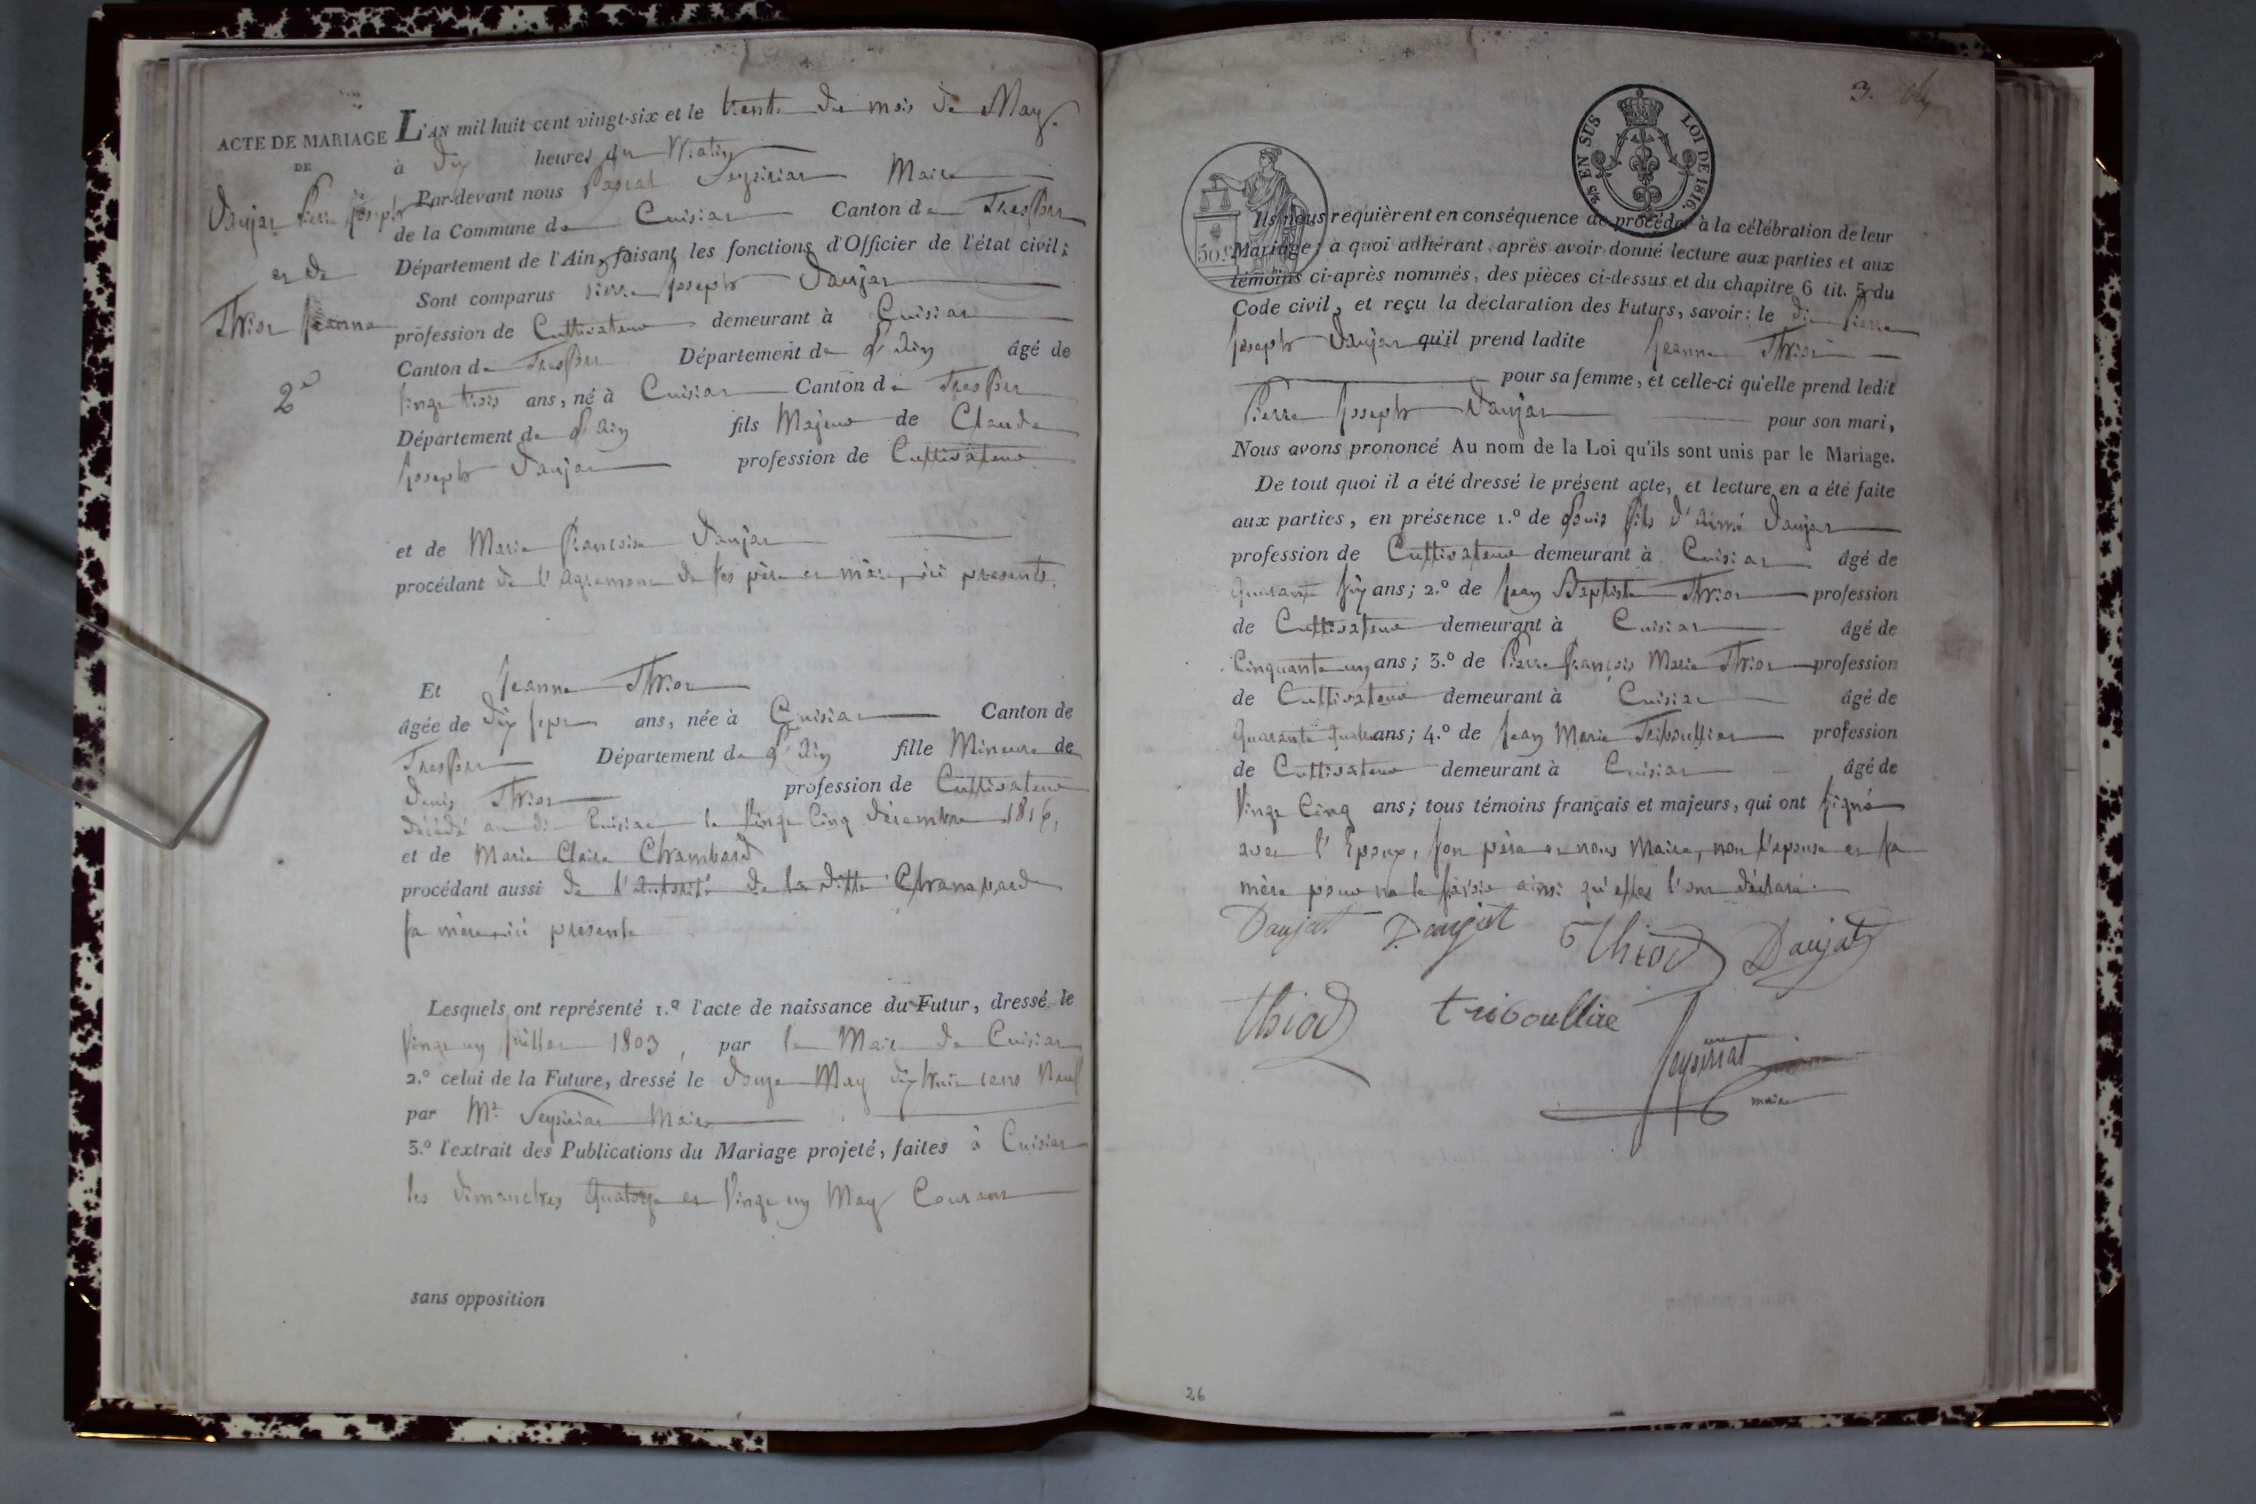 ACTE DE MARIAGE
DE
Daujat Pierre Joseph
et de
Thiot Jeanne
2e
L'AN mil huit cent vingt-six et le trente du mois de May
à dix heures du Matin
Par-devant nous Pascal Seysiriat Maire
de la Commune de Cuisiat Canton de Treffort
Département de l'Ain, faisant les fonctions d'Officier de l'état civil;
Sont comparus Pierre Joseph Daujat
profession de Cultivateur demeurant à Cuisiat
Canton de Treffort Département de l'Ain âgé de
vingt trois ans, né à Cuisiat Canton de Treffort
Département de l'Ain fils Majeur de Claude
Joseph Daujat profession de Cultivateur
et de Marie Françoise Daujat
procédant de l'agrement de ses père et mère, ici presents.
Et Jeanne Thiot
âgée de dix sept ans, née à Cuisiat Canton de
Treffort Département de l'Ain fille Mineure de
Denis Thiot profession de Cultivateur
décédé au dit Cuisiat le vingt Cinq décembre 1816,
et de Marie Claire Chambard
procédant aussi de l'autorité de la ditte Chambard
sa mère, ici presente
Lesquels ont représenté 1.º l'acte de naissance du Futur, dressé le
vingt un juillet 1803, par le Maire de Cuisiat
2.º celui de la Future, dressé le douze May dix huit cent Neuf
par Mr. Seysiriat Maire
3.º l'extrait des Publications du Mariage projeté, faites à Cuisiat
les dimanches quatorze et vingt un May Courant
sans opposition
3.
EN SUS
LOI DE 1816.
50 c
Ils nous requièrent en conséquence de procéder à la célébration de leur
Mariage; à quoi adhérant après avoir donné lecture aux parties et aux
témoins ci-après nommés, des pièces ci-dessus et du chapitre 6 tit. 5 du
Code civil, et reçu la déclaration des Futurs, savoir: le dit Pierre
Joseph Daujat qu'il prend ladite Jeanne Thiot
pour sa femme, et celle-ci qu'elle prend ledit
Pierre Joseph Daujat pour son mari,
Nous avons prononcé Au nom de la Loi qu'ils sont unis par le Mariage.
De tout quoi il a été dressé le présent acte, et lecture en a été faite
aux parties, en présence 1.º de Louis fils d'Aimé Daujat
profession de Cultivateur demeurant à Cuisiat âgé de
quarante six ans; 2.º de Jean Baptiste Thiot profession
de Cultivateur demeurant à Cuisiat âgé de
Cinquante un ans; 3.º de Pierre François Marie Thiot profession
de Cultivateur demeurant à Cuisiat âgé de
quarante quatre ans; 4.º de Jean Marie Triboullier profession
de Cultivateur demeurant à Cuisiat âgé de
vingt Cinq ans; tous témoins français et majeurs, qui ont signé
avec l'Epoux, son père et nous Maire, non l'epouse et sa
mère pour ne le savoir ainsi qu'elles l'ont déclaré
Daujat Daujat Thiod Daujat
thiod triboullie
Seysiriat
maire
26